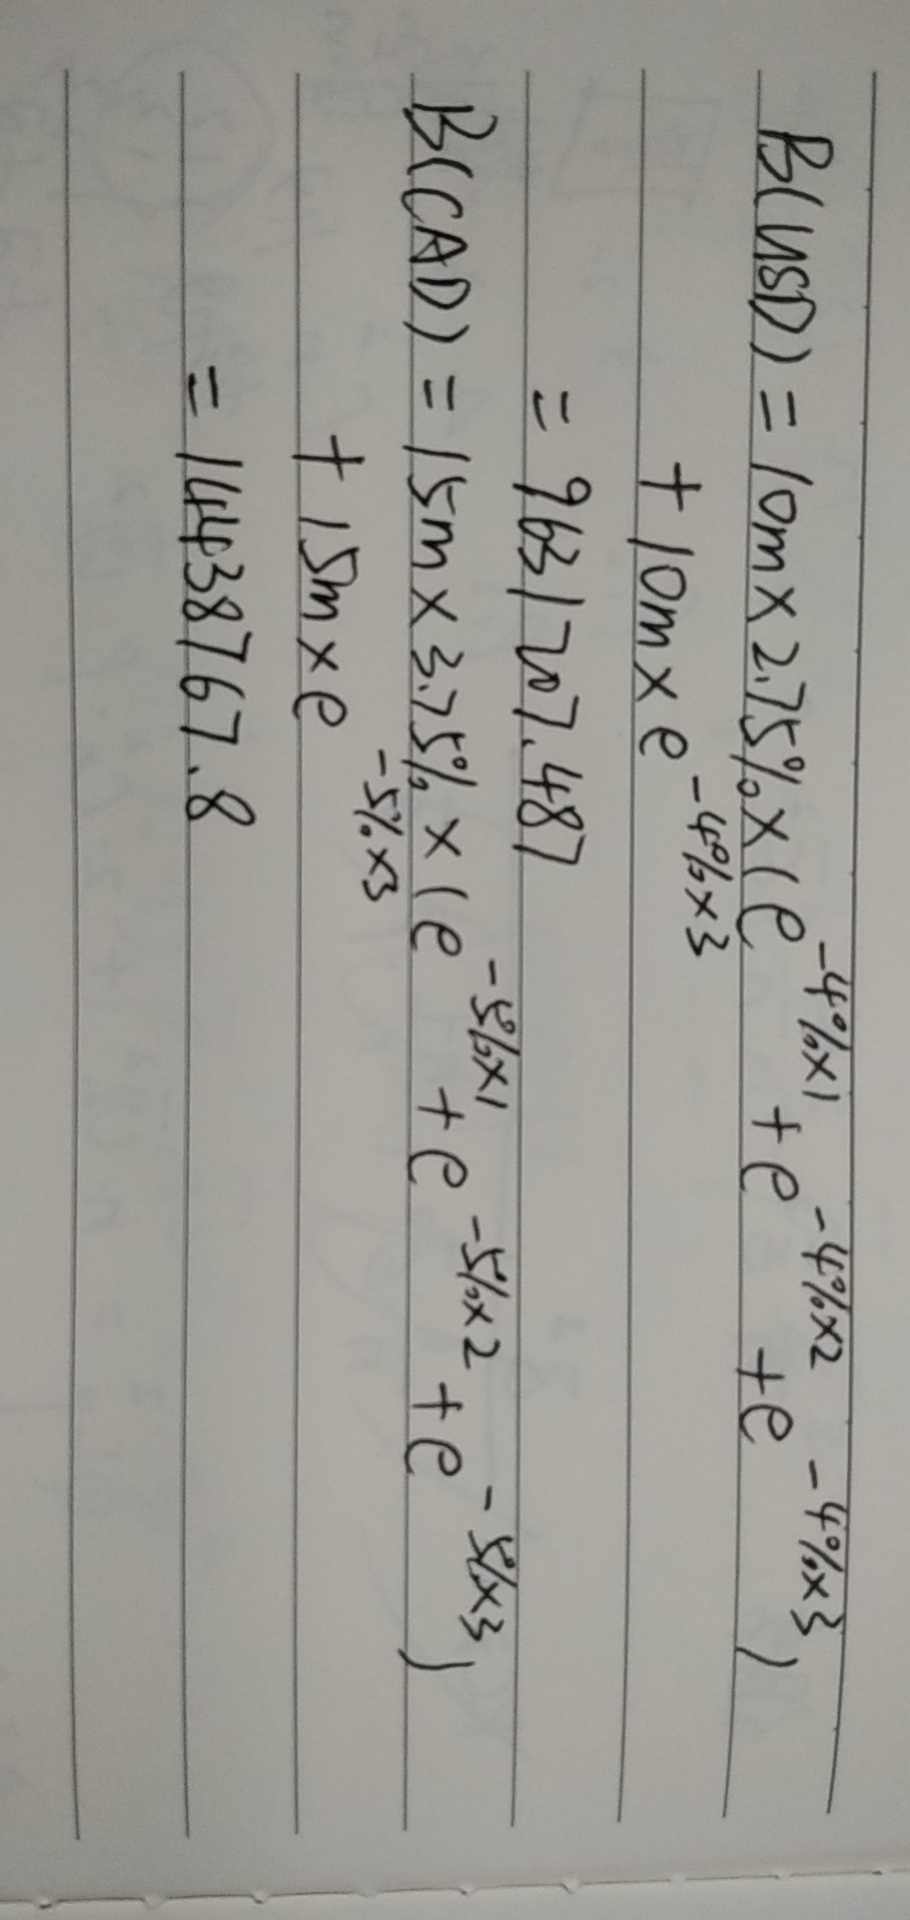 B(USD) = 10m×2.75%×(e^-4%×1 + e^-4%×2 + e^-4%×3)
+ 10m×e^-4%×3
= 9631207.487
B(CAD) = 15m×3.75%×(e^-5%×1 + e^-5%×2 + e^-5%×3)
+ 15m×e^-5%×3
= 14438767.8